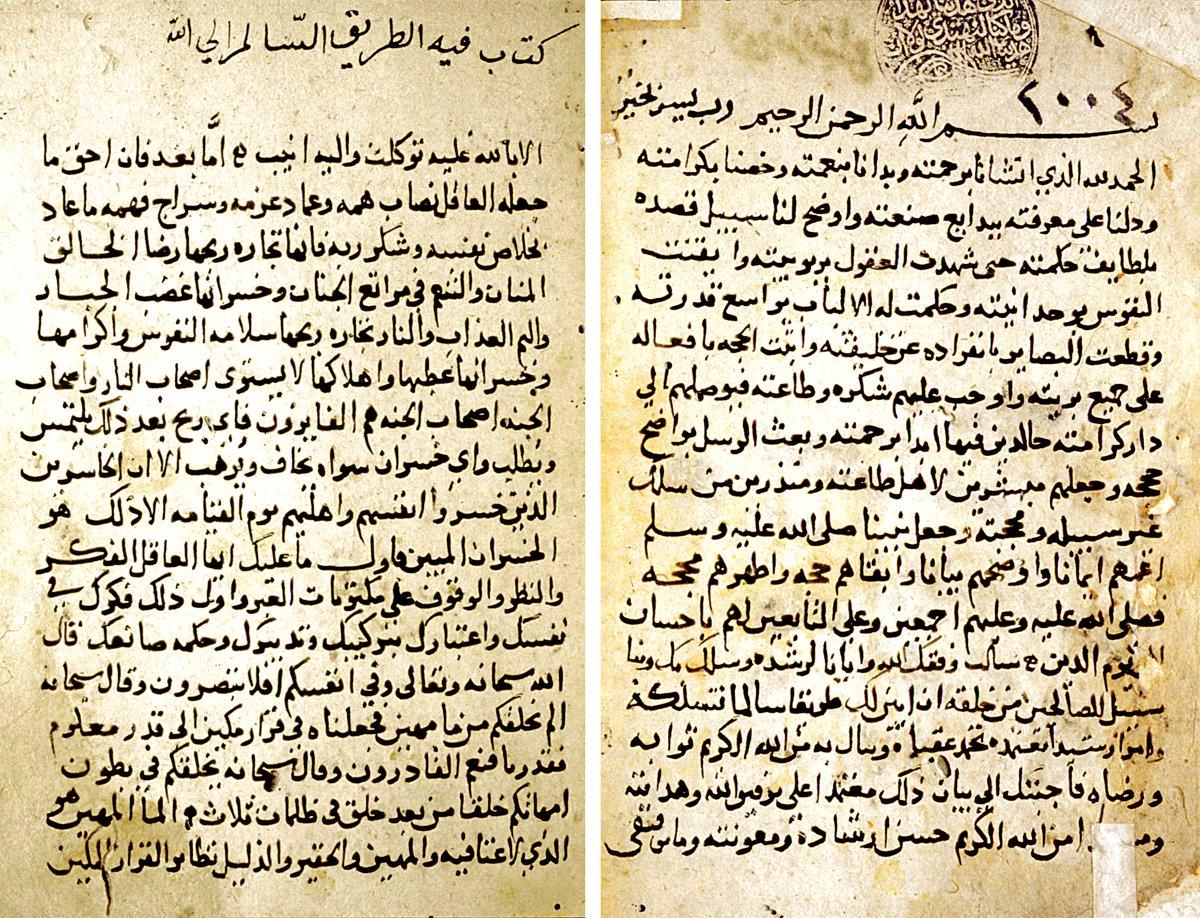 ٢٠٠٤
بسم الله الرحمن الرحيم رب يسر بخير
الحمد لله الذي انشانا برحمته وبدانا بنعمته وخصنا بكرامته
ودلنا على معرفته ببدايع صنعته واوضح لنا سبيل قصده
بلطايف حكمته حتى شهدت العقول بربوبيته وايقنت
النفوس بوحدانيته وحكمت له الالباب بواسع قدرته
وقطعت البصاير بانفراده عن خليقته واثبت الحجه بافعاله
على جميع بريته واوجب عليهم شكره وطاعته فيوصلهم الي
دار كرامته خالدين فيها ابدا برحمته وبعث الرسل بواضح
حججه وجعلهم مبشرين لاهل طاعته ومنذرين من سلك
غير سبيله ومحجته وجعل نبينا صلى الله عليه وسلم
اعمهم ايمانا واوضحهم بيانا وابقاهم حجه واطهرهم محجه
فصلى الله عليه وعليهم اجمعين وعلى التابعين لهم باحسان
يوم الدين سالت وفقك الله وايانا لرشده وسلك بك وبنا
سبيل الصالحين من خلقه ان ابين لك طريقا سالما تسلكه
وامرا رشيدا تعتمده تحمد عقباه وينال به من الله الكريم ثوابه
ورضاه فاجبتك الى بيان ذلك معتمدا على توفيق الله وهدايته
من الله الكريم حسن ارشاده ومعونته وما توفيقي
كتاب فيه الطريق السالم الي الله
الا بالله عليه توكلت واليه انيب اما بعد فان احق ما
جعله العاقل نصاب همه وعماد عزمه وسراج فهمه ما عاد
بخلاص نفسه وشكور ربه فانها تجاره ربحها رضا الخالق
المنان والتنعم في مراتع الجنان وخسرانها غضب الجبار
واليم العذاب والنار تجاره ربحها سلامه النفوس واكرامها
وخسرانها عطبها واهلاكها لا يستوى اصحاب النار واصحاب
الجنه اصحاب الجنه هم الفايزون فاي ربح بعد ذلك يلتمس
ويطلب واي خسران سواه يخاف ويرهب الا ان الخاسرين
الذين خسروا انفسهم واهليهم يوم القيامه الا ذلك هو
الخسران المبين فاول ما عليك ايها العاقل الفكر
والنظر والوقوف على مكتومات العبر واول ذلك فكرك في
نفسك واعتبارك بتركيبك وتدبيرك وحكمه صانعك قال
الله سبحانه وتعالى وفي انفسكم افلا تبصرون وقال سبحانه
الم نخلقكم من ما مهين فجعلناه في قرار مكين الى قدر معلوم
فقدرنا فنعم القادرون وقال سبحانه يخلقكم في بطون
امهاتكم خلقا من بعد خلق في ظلمات ثلاث الما المهين هو
الذي لا غنا فيه والمهين والحقير والذليل نظاير القرار المكين